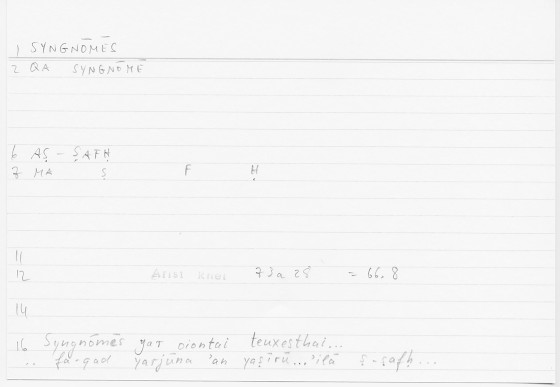 1 SYNGNŌMĒS
2 QA SYNGNŌMĒ
6 AṢ - ṢAFḤ
8 MA Ṣ F Ḥ
11
12 73a 25 = 66.8
14
16 Syngnōmēs gar oiontai teuxesthai...
.. fa-qad yarjūna 'an yaṣīrū...'ilā ṣ-ṣafḥ...